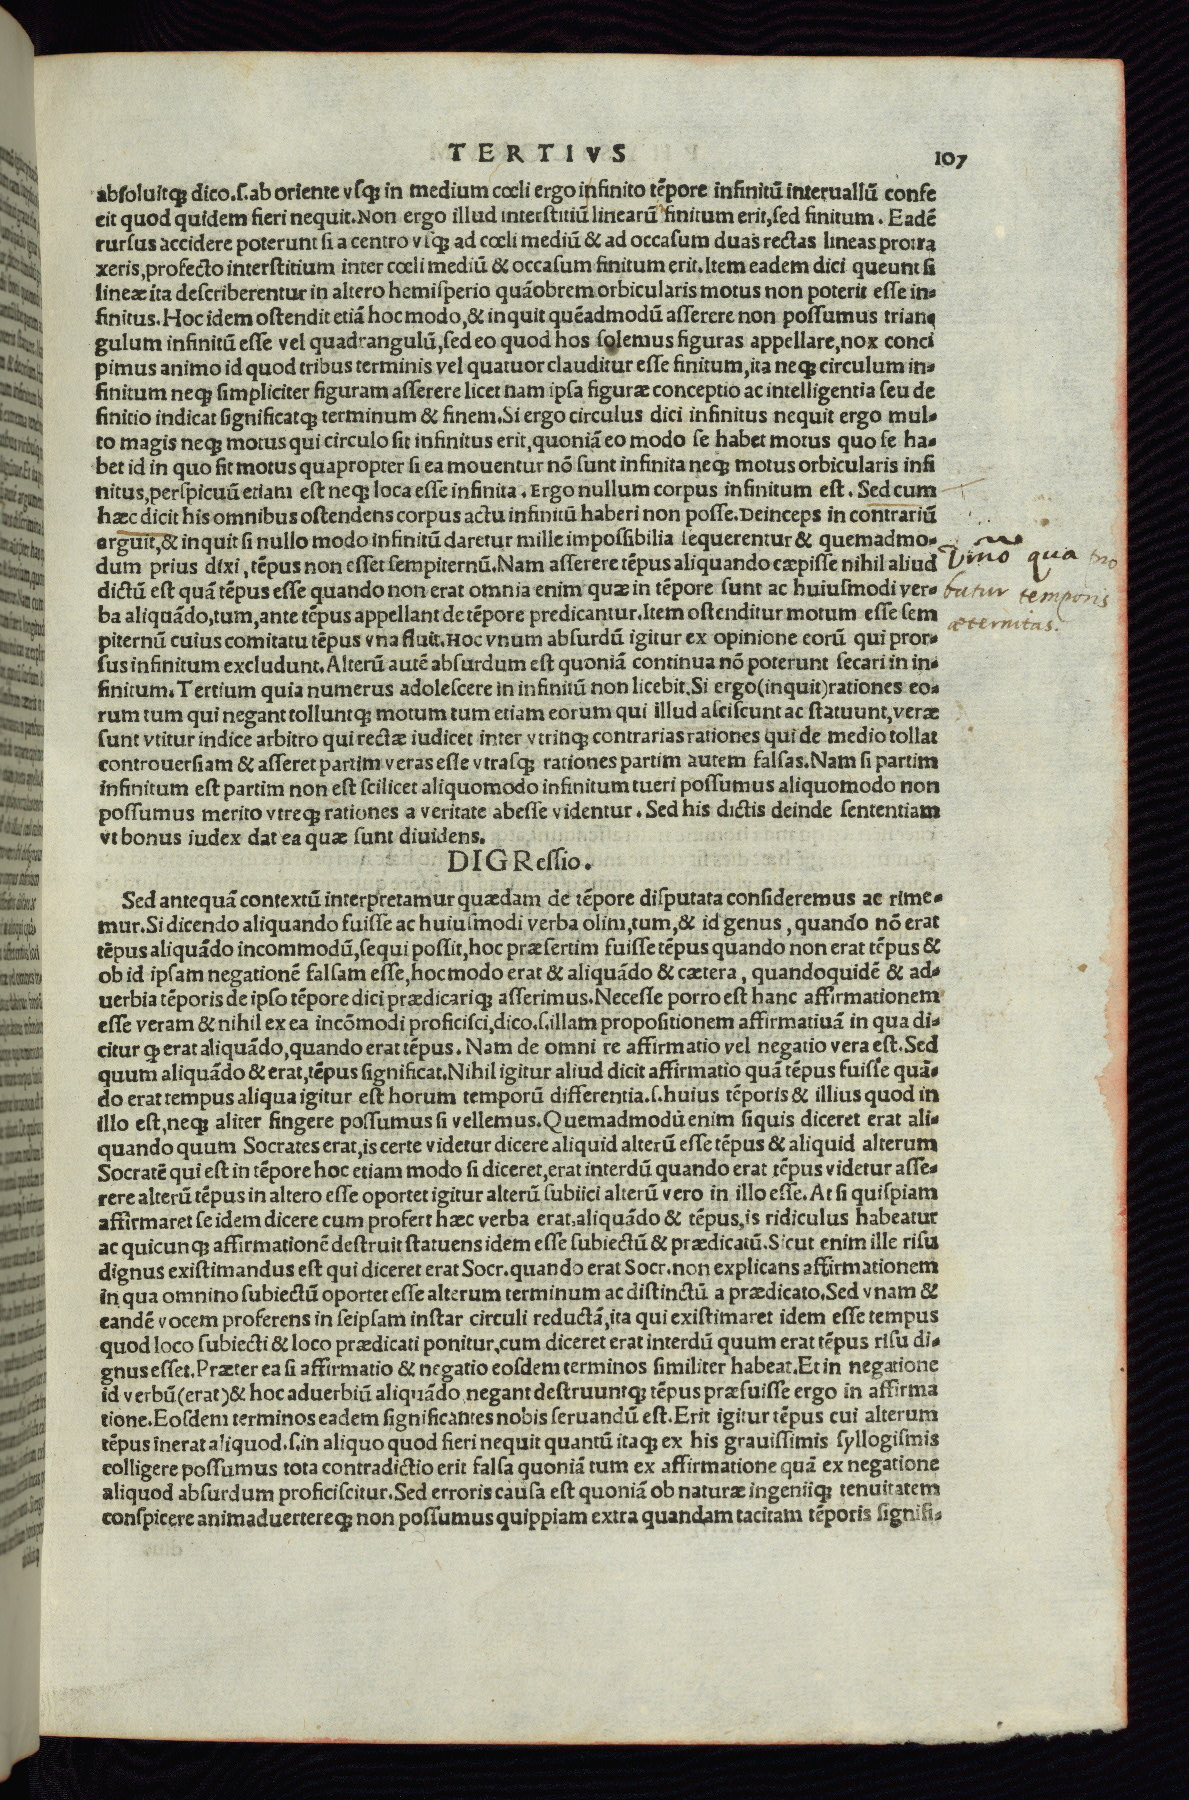 TERTIVS
107
absoluitqꝫ dico.ſ.ab oriente vſqꝫ in medium cœli ergo infinito tēpore infinitū interuallū confe
cit quod quidem fieri nequit.Non ergo illud interstitiū linearū finitum erit,sed finitum. Eadē
rursus accidere poterunt si a centro vſqꝫ ad cœli mediū & ad occasum duas rectas lineas protra
xeris,profecto interstitium inter cœli mediū & occasum finitum erit.Item eadem dici queunt si
lineæ ita describerentur in altero hemisperio quāobrem orbicularis motus non poterit esse in-
finitus.Hoc idem ostendit etiā hoc modo,& inquit quēadmodū asserere non possumus trian
gulum infinitū esse vel quadrangulū,sed eo quod hos solemus figuras appellare,nox conci
pimus animo id quod tribus terminis vel quatuor clauditur esse finitum,ita neqꝫ circulum in-
finitum neqꝫ simpliciter figuram asserere licet nam ipsa figuræ conceptio ac intelligentia seu de
finitio indicat significatqꝫ terminum & finem.Si ergo circulus dici infinitus nequit ergo mul-
to magis neqꝫ motus qui circulo sit infinitus erit,quoniā eo modo se habet motus quo se ha-
bet id in quo fit motus quapropter si ea mouentur nō sunt infinita neqꝫ motus orbicularis infi
nitus,perspicuū etiam est neqꝫ loca esse infinita. Ergo nullum corpus infinitum est. Sed cum
hæc dicit his omnibus ostendens corpus actu infinitū haberi non posse.Deinceps in contrariū
arguit,& inquit si nullo modo infinitū daretur mille impossibilia sequerentur & quemadmo-
dum prius dixi, tēpus non esset sempiternū. Nam asserere tēpus aliquando cæpisse nihil aliud
dictū est quā tēpus esse quando non erat omnia enim quæ in tēpore sunt ac huiusmodi ver-
ba aliquādo,tum,ante tēpus appellant de tēpore predicantur.Item ostenditur motum esse sem
piternū cuius comitatu tēpus vna fluit.Hoc vnum absurdū igitur ex opinione eorū qui pror-
sus infinitum excludunt.Alterū autē absurdum est quoniā continua nō poterunt secari in in-
finitum.Tertium quia numerus adolescere in infinitū non licebit.Si ergo(inquit)rationes eo-
rum tum qui negant tolluntqꝫ motum tum etiam eorum qui illud asciscunt ac statuunt,veræ
sunt vtitur indice arbitro qui rectæ iudicet inter vtrinqꝫ contrarias rationes qui de medio tollat
controuersiam & asseret partim veras esse vtrasqꝫ rationes partim autem falsas.Nam si partim
infinitum est partim non est scilicet aliquomodo infinitum tueri possumus aliquomodo non
possumus merito vtreqꝫ rationes a veritate abesse videntur. Sed his dictis deinde sententiam
vt bonus iudex dat ea quæ sunt diuidens.
Vino qua
batur temporis
æternitas.
DIGRessio.
Sed antequā contextū interpretamur quædam de tēpore disputata consideremus ac rime-
mur.Si dicendo aliquando fuisse ac huiusmodi verba olim,tum,& id genus, quando nō erat
tēpus aliquādo incommodū,sequi possit,hoc præsertim fuisse tēpus quando non erat tēpus &
ob id ipsam negationē falsam esse,hoc modo erat & aliquādo & cætera, quandoquidē & ad-
uerbia tēporis de ipso tēpore dici prædicariqꝫ asserimus.Necesse porro est hanc affirmationem
esse veram & nihil ex ea incōmodi proficisci,dico.ſ.illam propositionem affirmatiuā in qua di-
citur qꝫ erat aliquādo,quando erat tēpus. Nam de omni re affirmatio vel negatio vera est.Sed
quum aliquādo & erat,tēpus significat.Nihil igitur aliud dicit affirmatio quā tēpus fuisse quā-
do erat tempus aliqua igitur est horum temporū differentia.ſ.huius tēporis & illius quod in
illo est,neqꝫ aliter fingere possumus si vellemus.Quemadmodū enim siquis diceret erat ali-
quando quum Socrates erat,is certe videtur dicere aliquid alterū esse tēpus & aliquid alterum
Socratē qui est in tēpore hoc etiam modo si diceret,erat interdū quando erat tēpus videtur asse-
rere alterū tēpus in altero esse oportet igitur alterū subiici alterū vero in illo esse.At si quispiam
affirmaret se idem dicere cum profert hæc verba erat,aliquādo & tēpus,is ridiculus habeatur
ac quicunqꝫ affirmationē destruit statuens idem esse subiectū & prædicatū.Sicut enim ille risu
dignus existimandus est qui diceret erat Socr.quando erat Socr.non explicans affirmationem
in qua omnino subiectū oportet esse alterum terminum ac distinctū a prædicato.Sed vnam &
eandē vocem proferens in seipsam instar circuli reductā,ita qui existimaret idem esse tempus
quod loco subiecti & loco prædicati ponitur,cum diceret erat interdū quum erat tēpus risu di-
gnus esset.Præter ea si affirmatio & negatio eosdem terminos similiter habeat.Et in negatione
id verbū(erat)& hoc aduerbiū aliquādo negant destruuntqꝫ tēpus præfuisse ergo in affirma
tione.Eosdem terminos eadem significantes nobis seruandū est.Erit igitur tēpus cui alterum
tēpus inerat aliquod.ſ.in aliquo quod fieri nequit quantū itaqꝫ ex his grauissimis syllogismis
colligere possumus tota contradictio erit falsa quoniā tum ex affirmatione quā ex negatione
aliquod absurdum proficiscitur.Sed erroris causa est quoniā ob naturæ ingeniiqꝫ tenuitatem
conspicere animaduertereqꝫ non possumus quippiam extra quandam tacitam tēporis signifi-